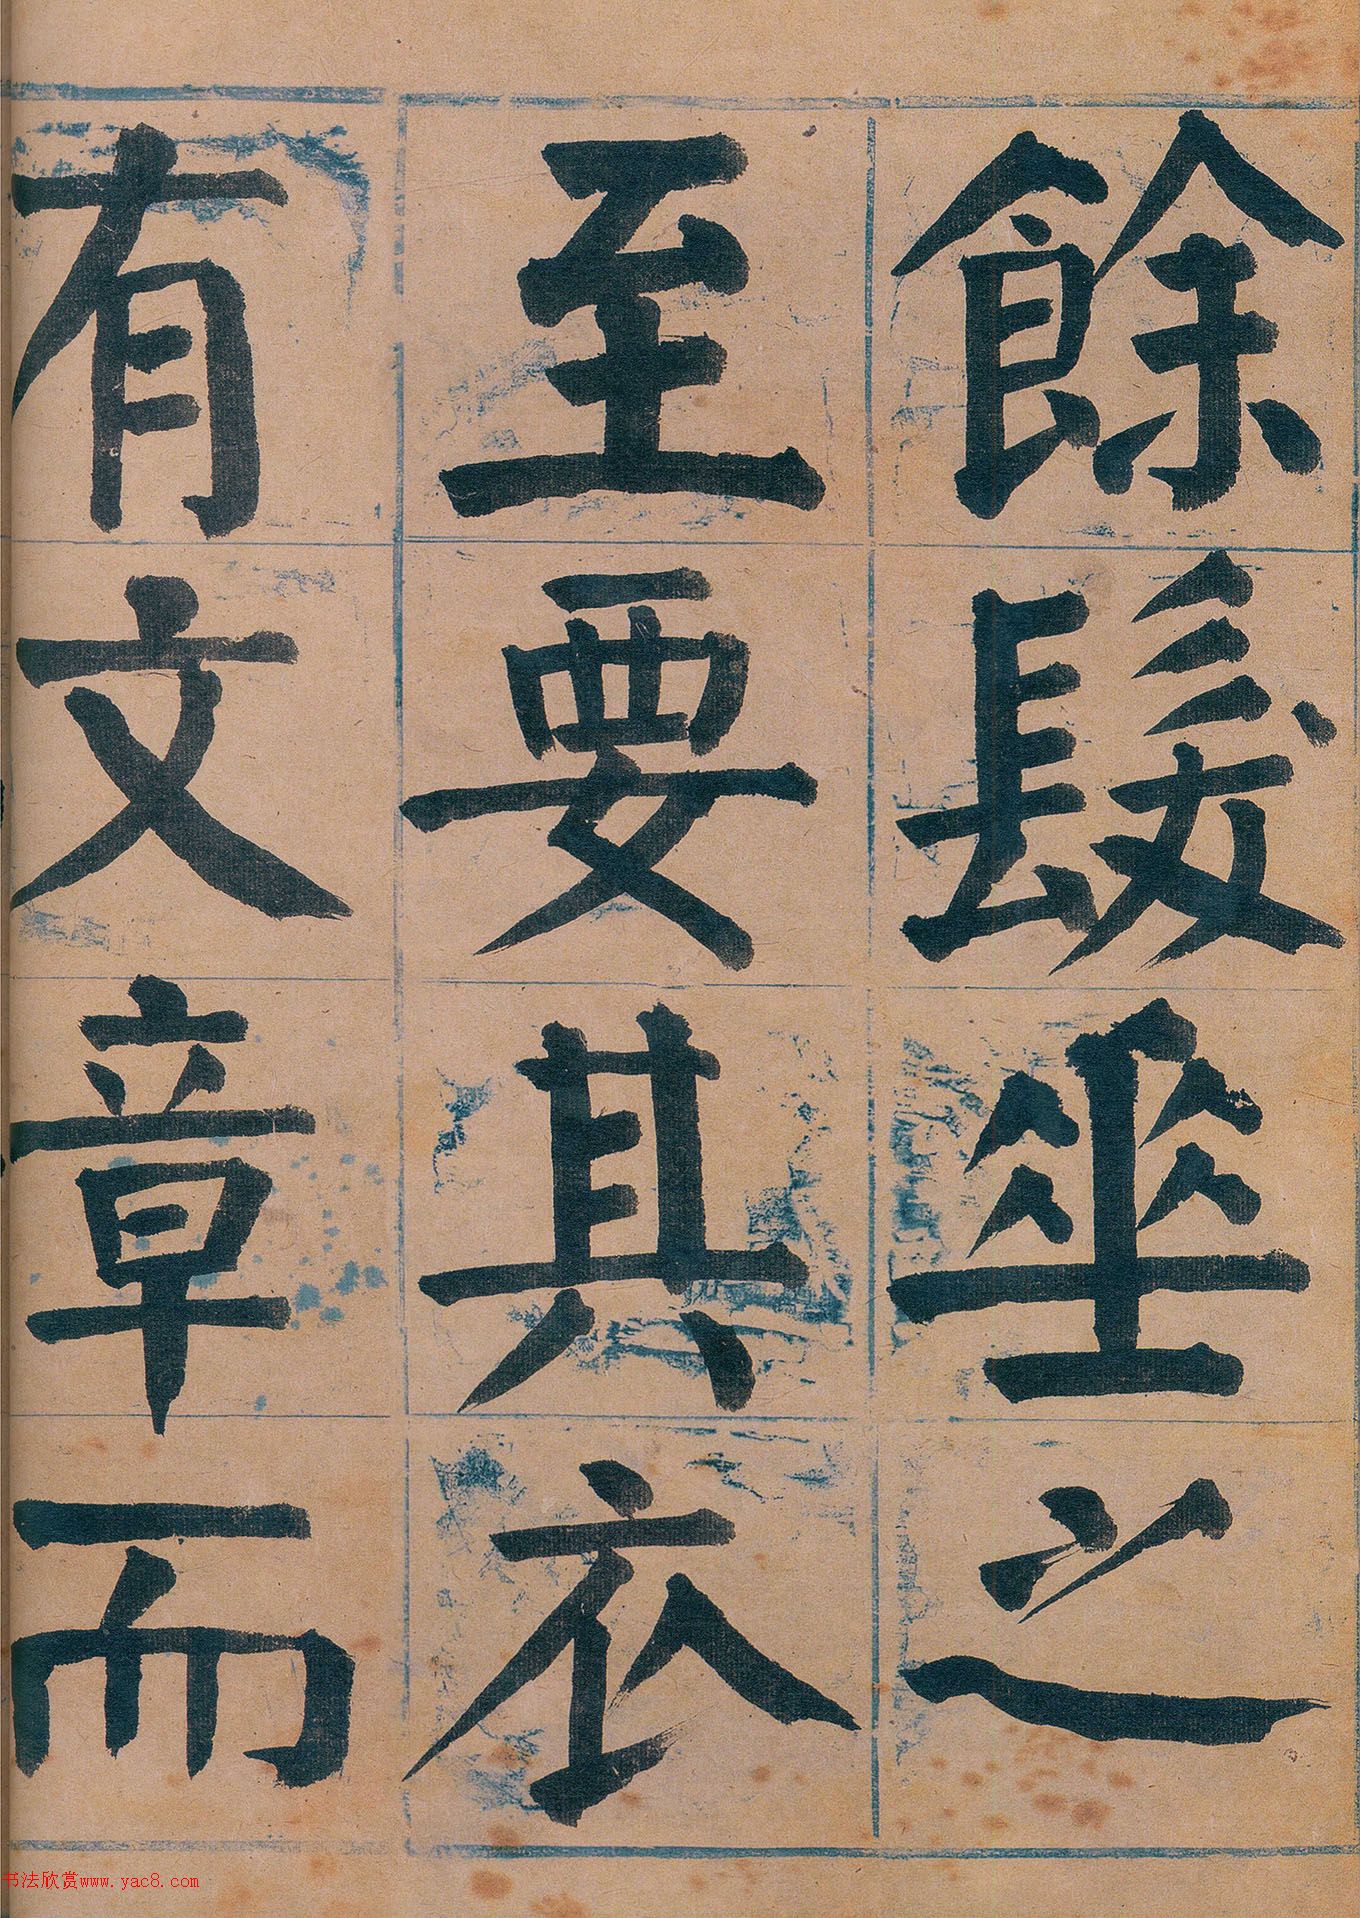 餘髮坐之
至要其衣
有文章而
书法欣赏www.yac8.com